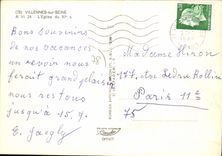 (78) VILLENNES-sur-SEINE
A M 24 L'Eglise du XIe s.
Bons Souvenirs
de nos vacances
un revoir nous
ferait grand plaisir
nous restons
jusqu'à 15.9.
Madame Hiron
117, Rue Ledru Rollin
Paris 11e
75